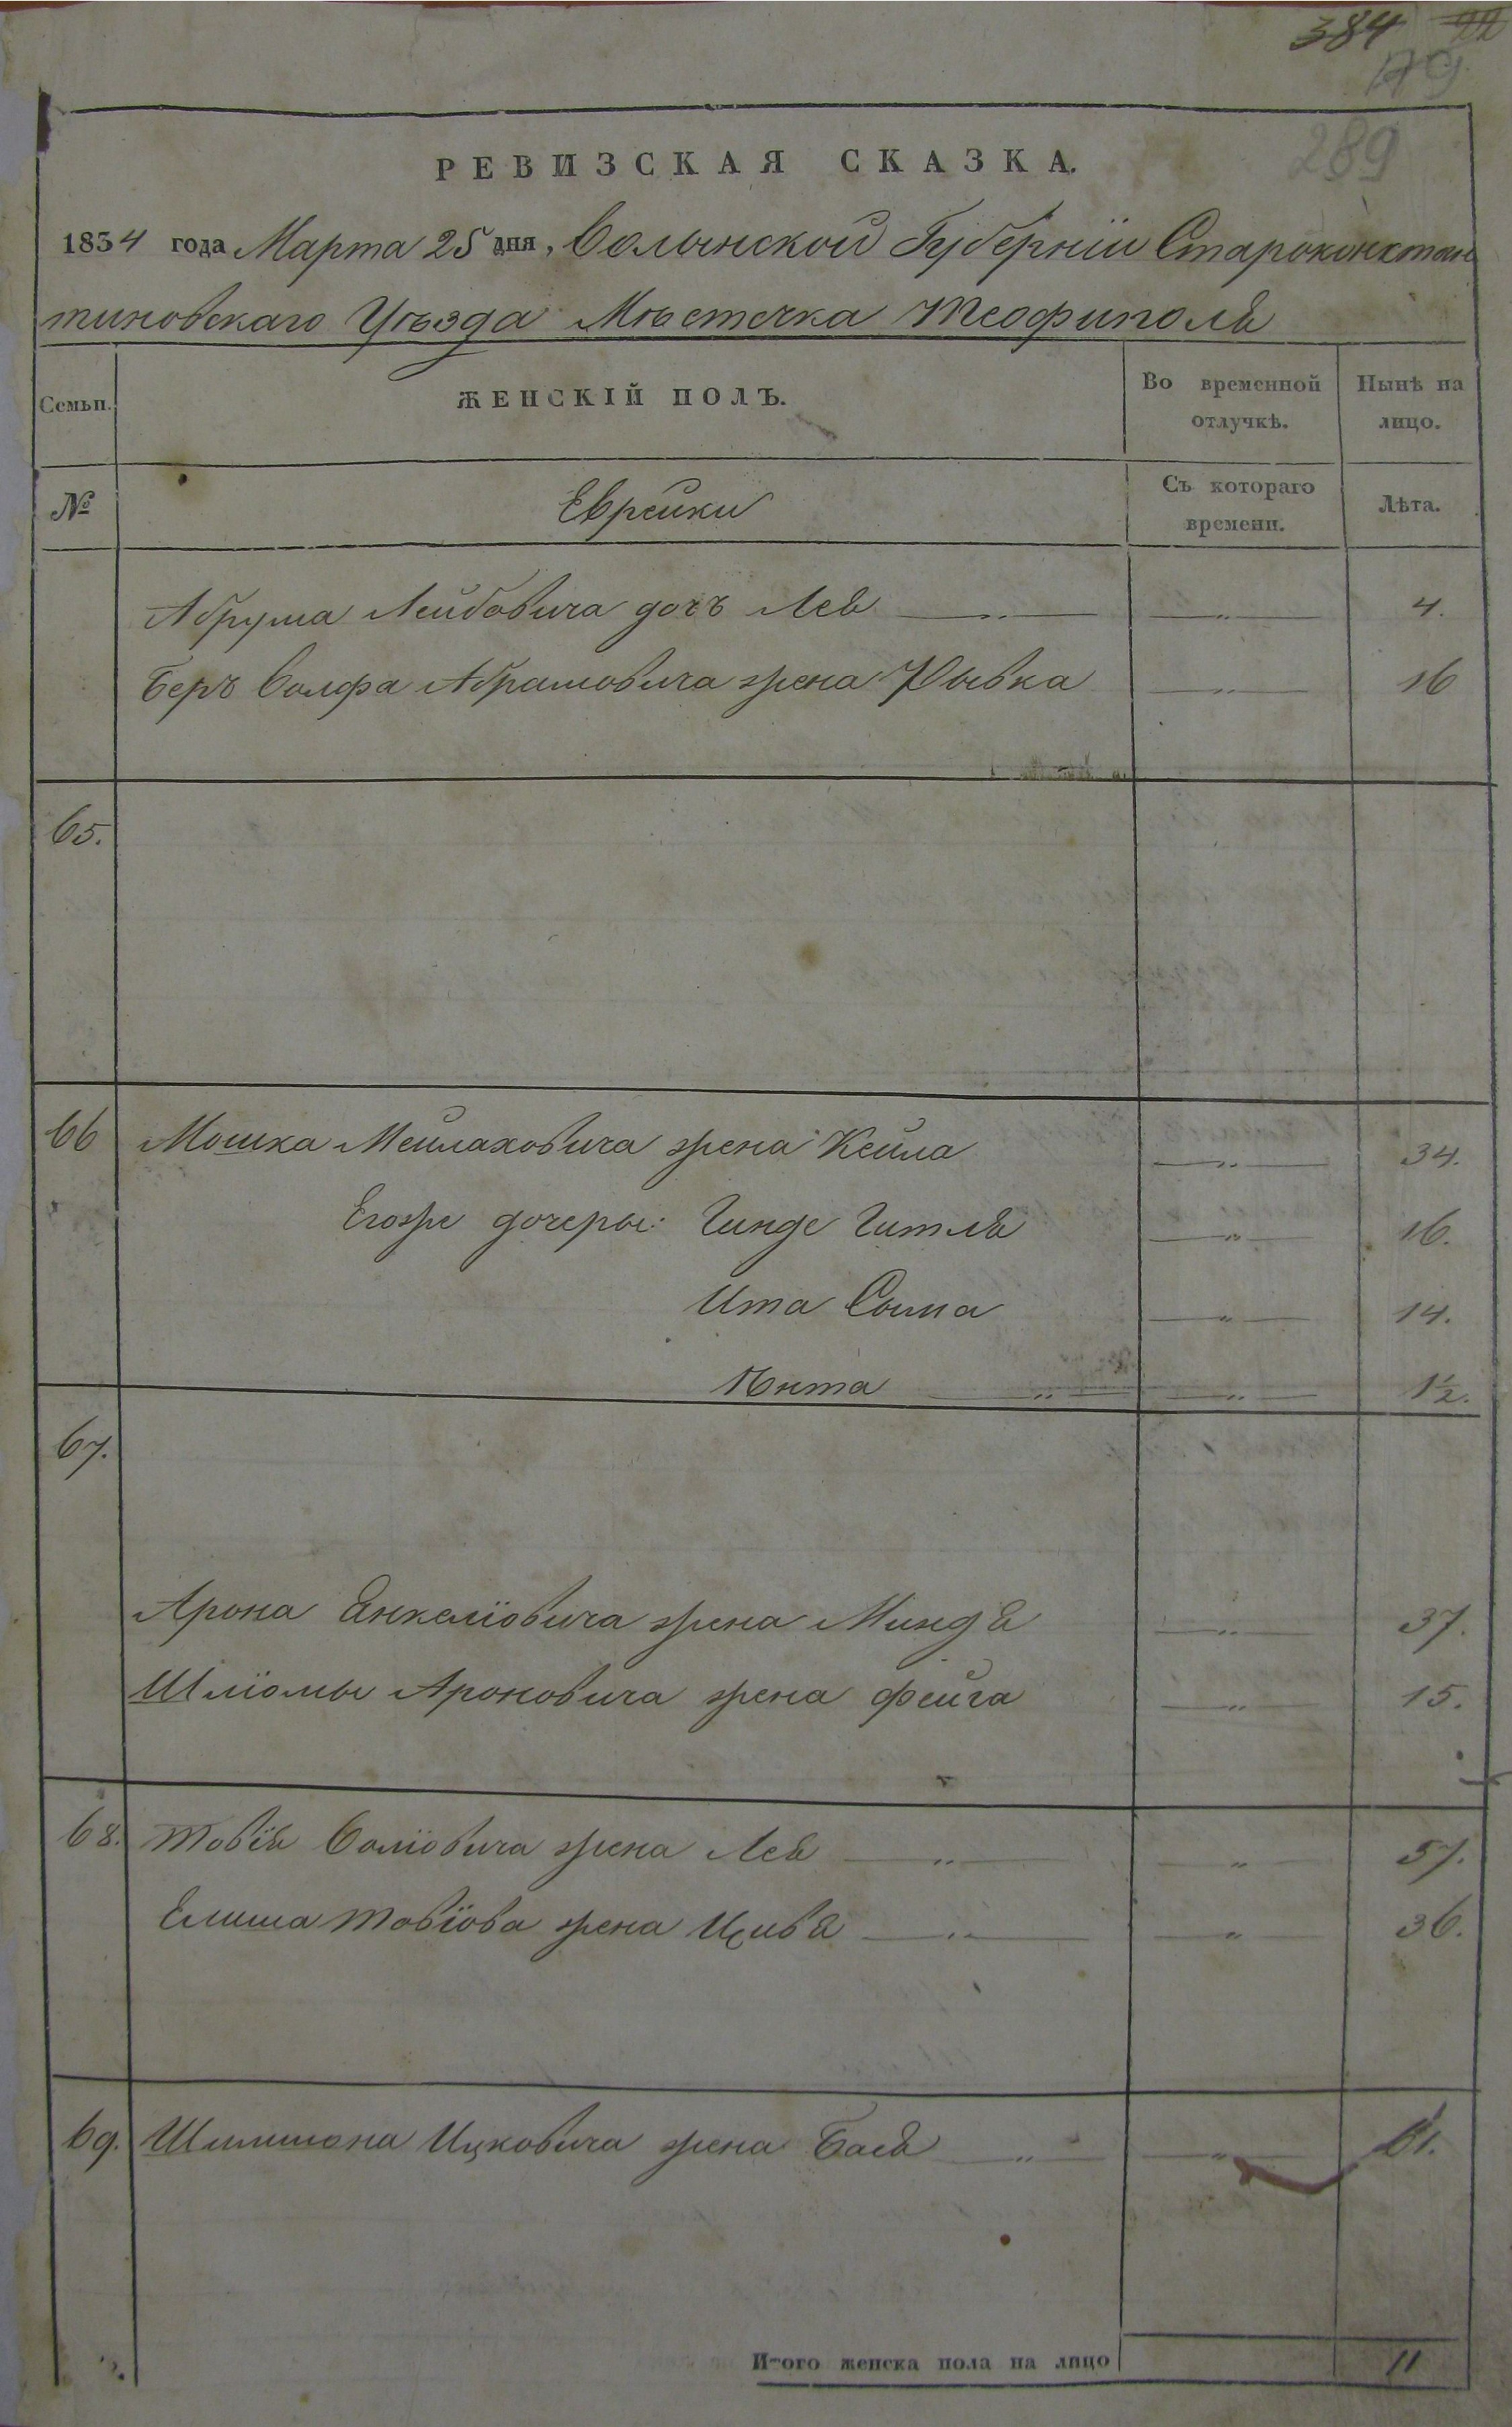 384 22
179
289
РЕВИЗСКАЯ СКАЗКА.
1834 года Марта 25 дня, Волынской Губерніи Староконстан
тиновскаго Уѣзда Мѣстечка Теофиполя
Семьи. ЖЕНСКІЙ ПОЛЪ. Во временной отлучкѣ. Нынѣ на лицо.
№ Еврейки Съ котораго времени. Лѣта.
Абрума Лейбовича дочъ Лея — „ — — „ — 4.
Беръ Волфа Абрамовича жена Рывка — „ — 16
65.
66 Мошка Мейлаховича жена Кейла — „ — 34.
Егоже дочеры: Гинде Гитля — „ — 16.
Ита Сыма — „ — 14.
Юнта — „ — — „ — 1½.
67.
Арона Янкеліовича жена Миндя — „ — 37.
Шліомы Ароновича жена Фейга — „ — 15.
68. Товія Воліовича жена Лея — „ — — „ — 57.
Елиша Товіова жена Цивя — „ — — „ — 36.
69. Шлимшона Ицковича жена Бася — „ — — „ — 61.
Итого женска пола на лицо 11